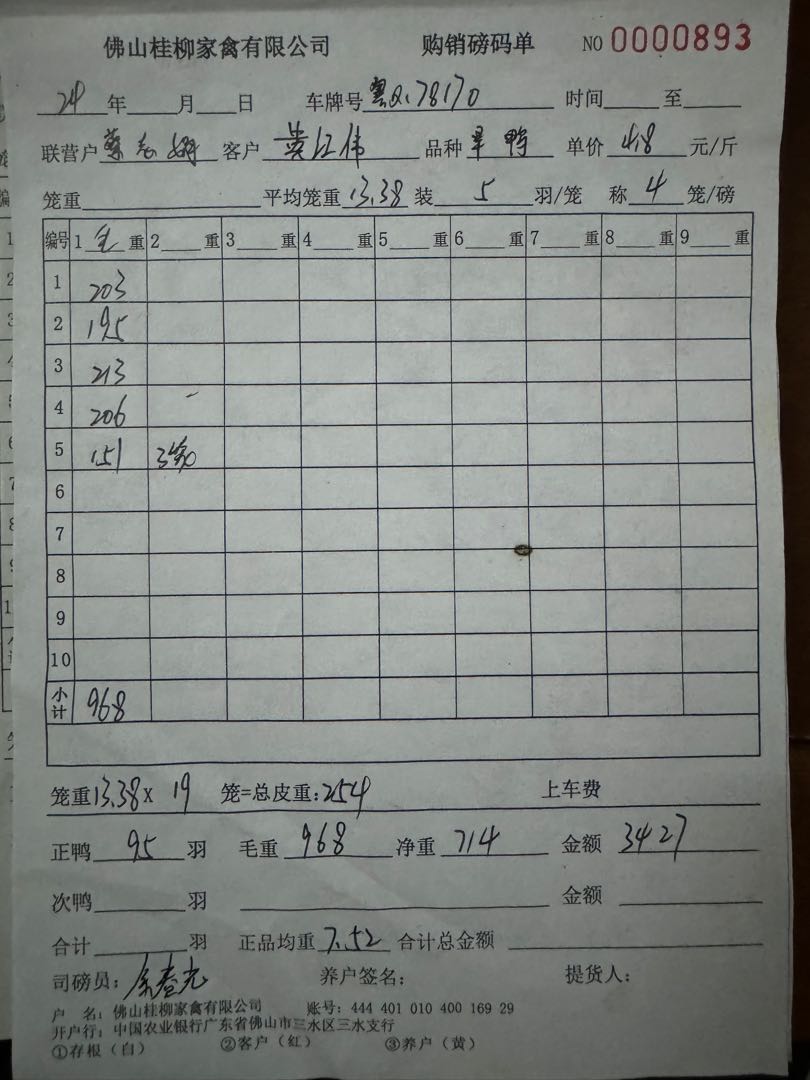 佛山桂柳家禽有限公司 购销磅码单 NO 0000893
24年 月 日 车牌号 粤Q178170 时间 至
联营户 蔡志 客户 黄江伟 品种 旱鸭 单价 4.8 元/斤
笼重 平均笼重 13.38 装 5 羽/笼 称 4 笼/磅
编号 1 毛 重 2 重 3 重 4 重 5 重 6 重 7 重 8 重 9 重
1 203
2 195
3 213
4 206
5 151 3笼
6
7
8
9
10
小计 968
笼重13.38X 19 笼=总皮重:254 上车费
正鸭 95 羽 毛重 968 净重 714 金额 3427
次鸭 羽 金额
合计 羽 正品均重 7.52 合计总金额
司磅员: 余春光 养户签名: 提货人:
户 名: 佛山桂柳家禽有限公司 账号: 444 401 010 400 169 29
开户行: 中国农业银行广东省佛山市三水区三水支行
①存根(白) ②客户(红) ③养户(黄)